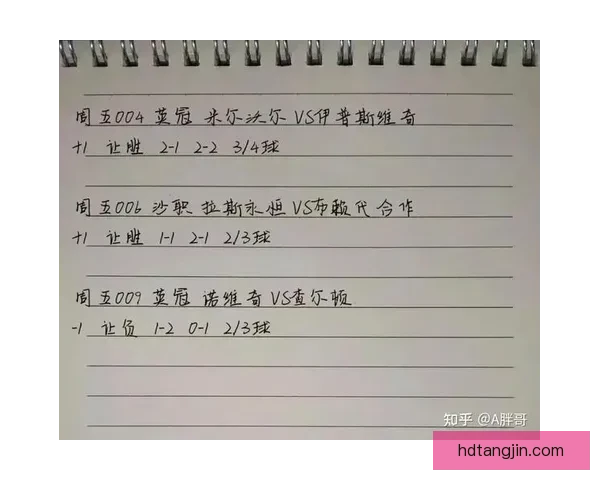 周五004 英冠 米尔沃尔 VS伊普斯维奇
+1 让胜 2-1 2-2 3/4球
周五006 沙职 拉斯永恒 VS布赖代合作
+1 让胜 1-1 2-1 2/3球
周五009 英冠 诺维奇 VS查尔顿
-1 让负 1-2 0-1 2/3球
知乎 @A胖哥
hdtangjin.com